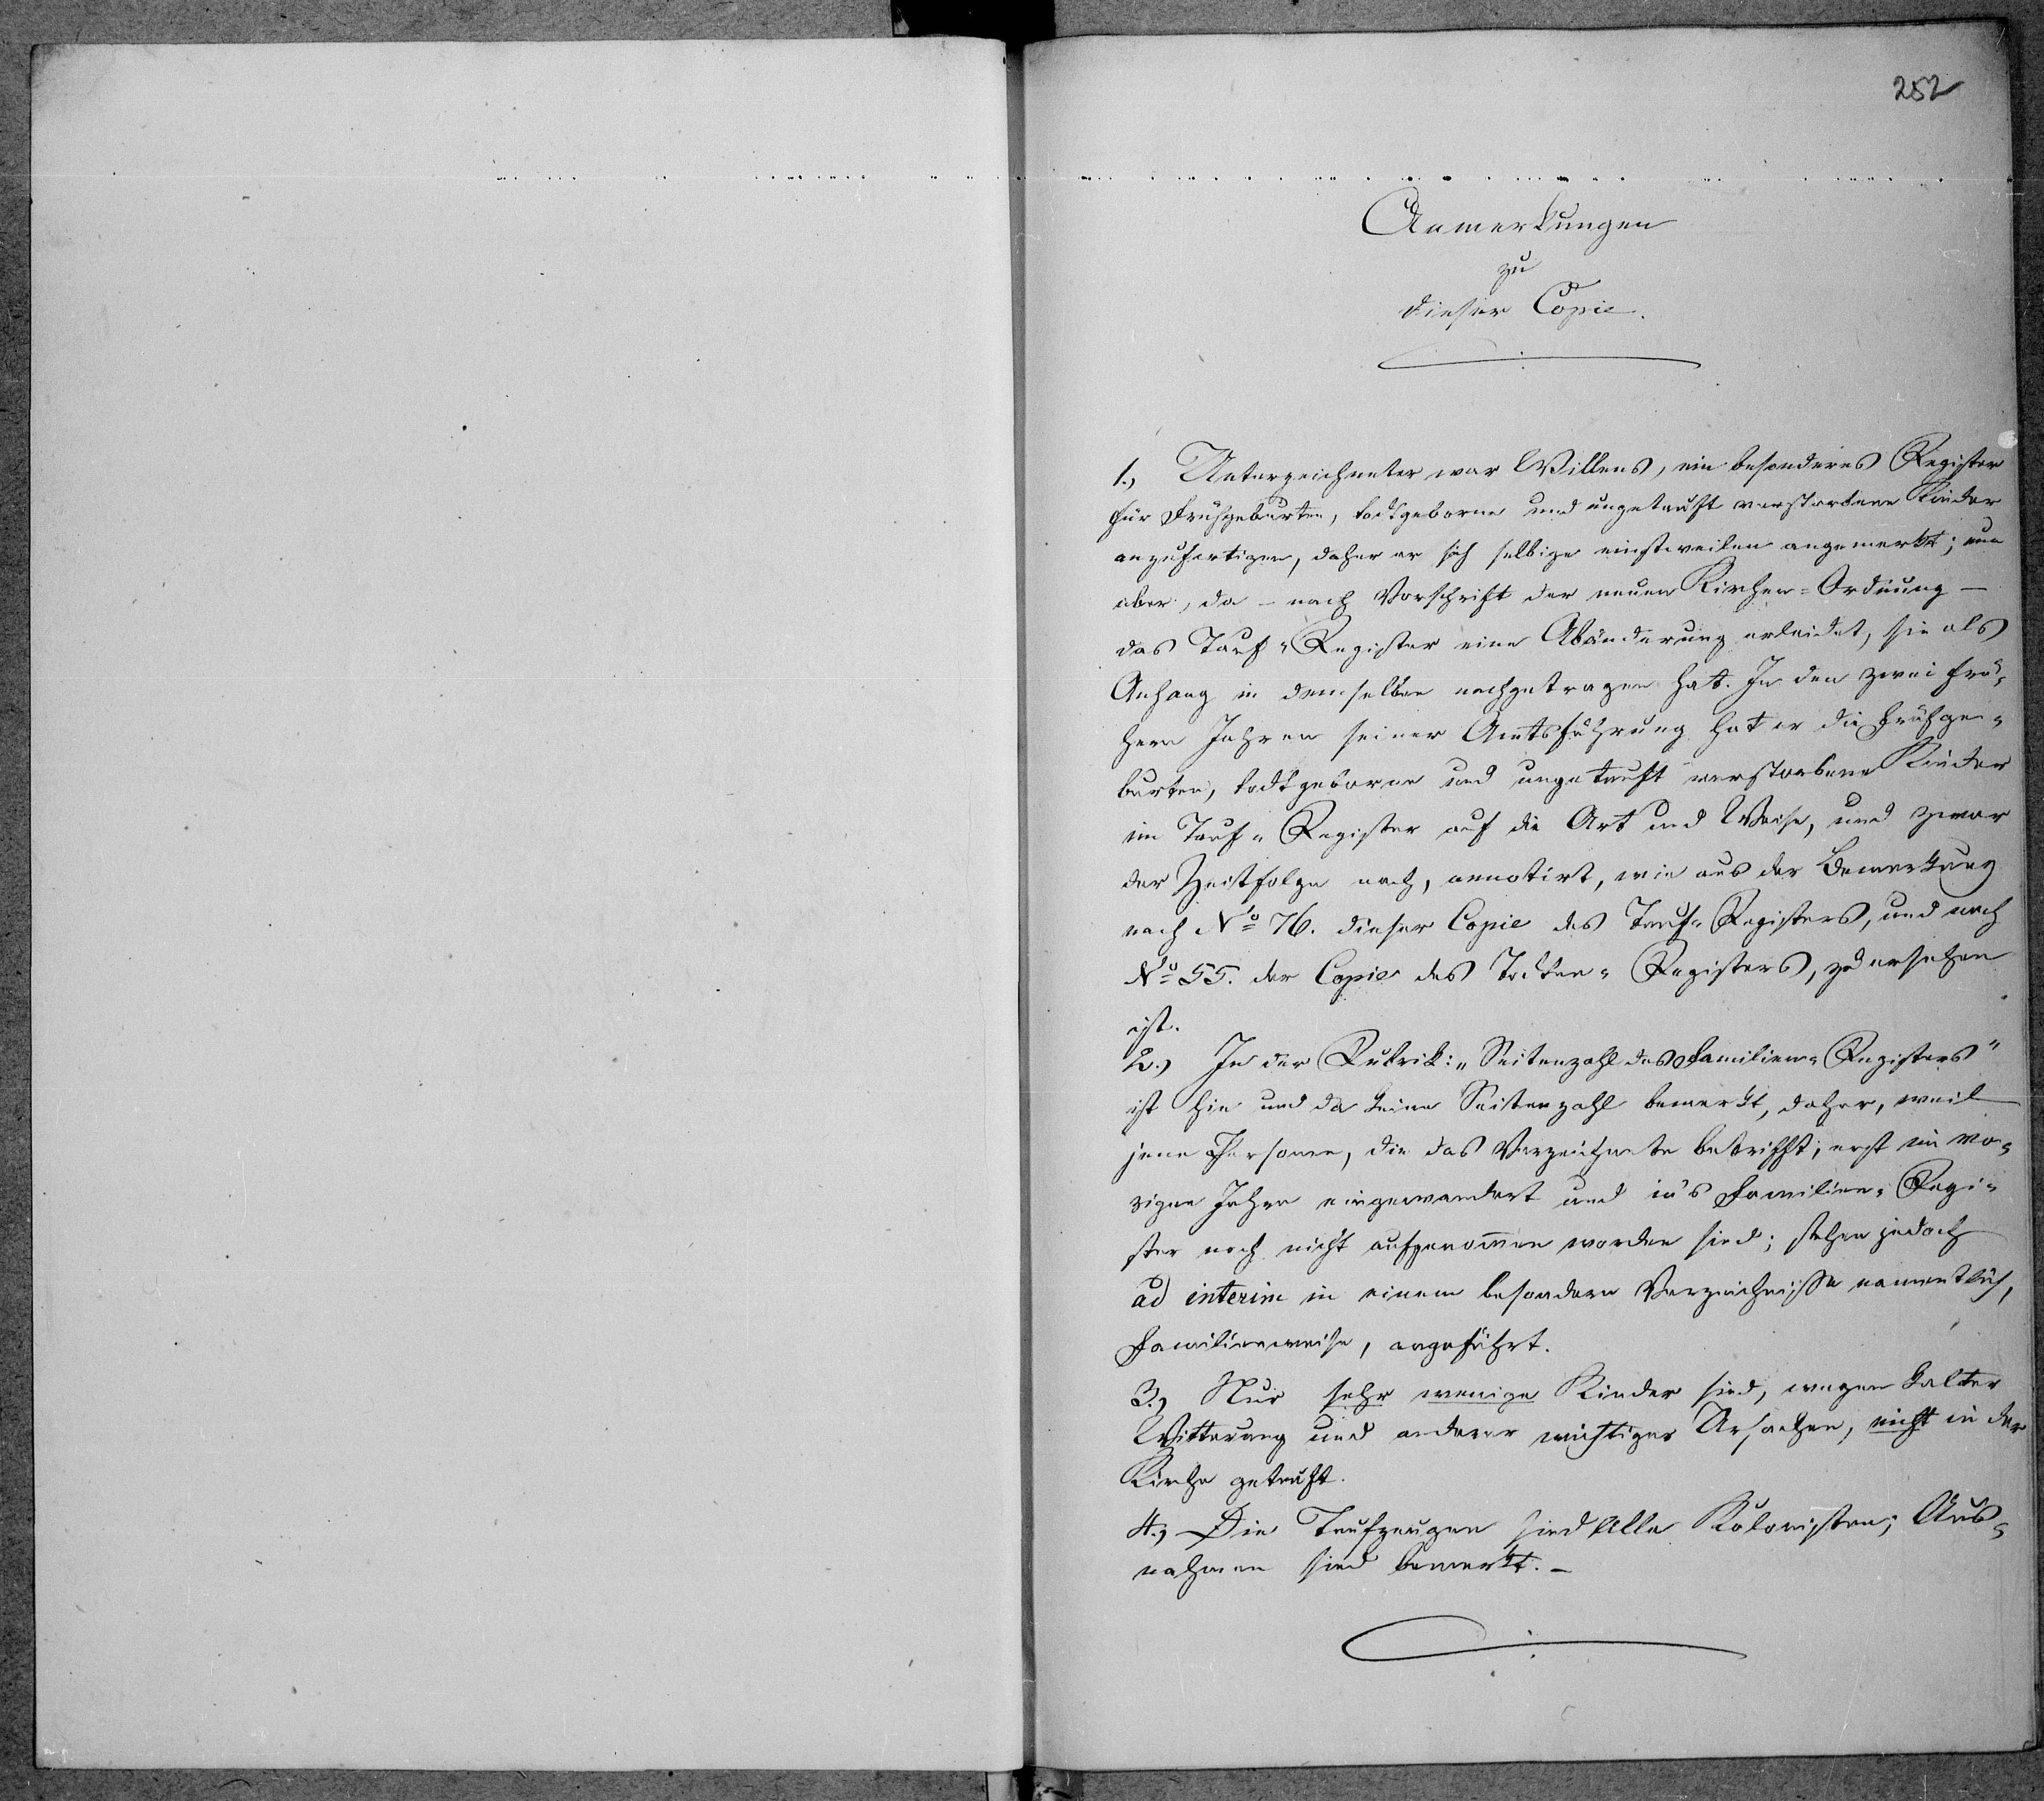 252
Anmerkungen
zu
dieser Copie.
1., Unterzeichneter war Willens, ein besonderes Register
für Frühgeburten, todtgeborne und ungetauft verstorbene Kinder
anzufertigen, daher er sich selbige einstweilen angemerkt; nun
aber, da – nach Vorschrift der neuen Kirchen-Ordnung –
das Tauf-Register eine Abänderung erleidet, sie als
Anhang in demselben nachgetragen hat. In den zwei frü-
hern Jahren seiner Amtsführung hat er die Frühge-
burten, todtgeborne und ungetauft verstorbene Kinder
im Tauf-Register auf die Art und Weise, und zwar
der Zeitfolge nach, annotirt, wie aus der Bemerkung
nach No 76. dieser Copie des Tauf-Registers, und nach
No 55. der Copie des Todten-Registers, zu ersehen
ist.
2.) In der Rubrik: „Seitenzahl des Familien-Registers"
ist hie und da keine Seitenzahl bemerkt, daher, weil
jene Personen, die das Verzeichnete betrifft, erst im vo-
rigen Jahre eingewandert und in's Familien-Regi-
ster noch nicht aufgenommen worden sind; stehen jedoch
ad interim in einem besondern Verzeichnisse namentlich,
Familienweise, angeführt.
3., Nur sehr wenige Kinder sind, wegen kalter
Witterung und anderer wichtiger Ursachen, nicht in der
Kirche getauft.
4., Die Taufzeugen sind Alle Kolonisten; Aus-
nahmen sind bemerkt. –